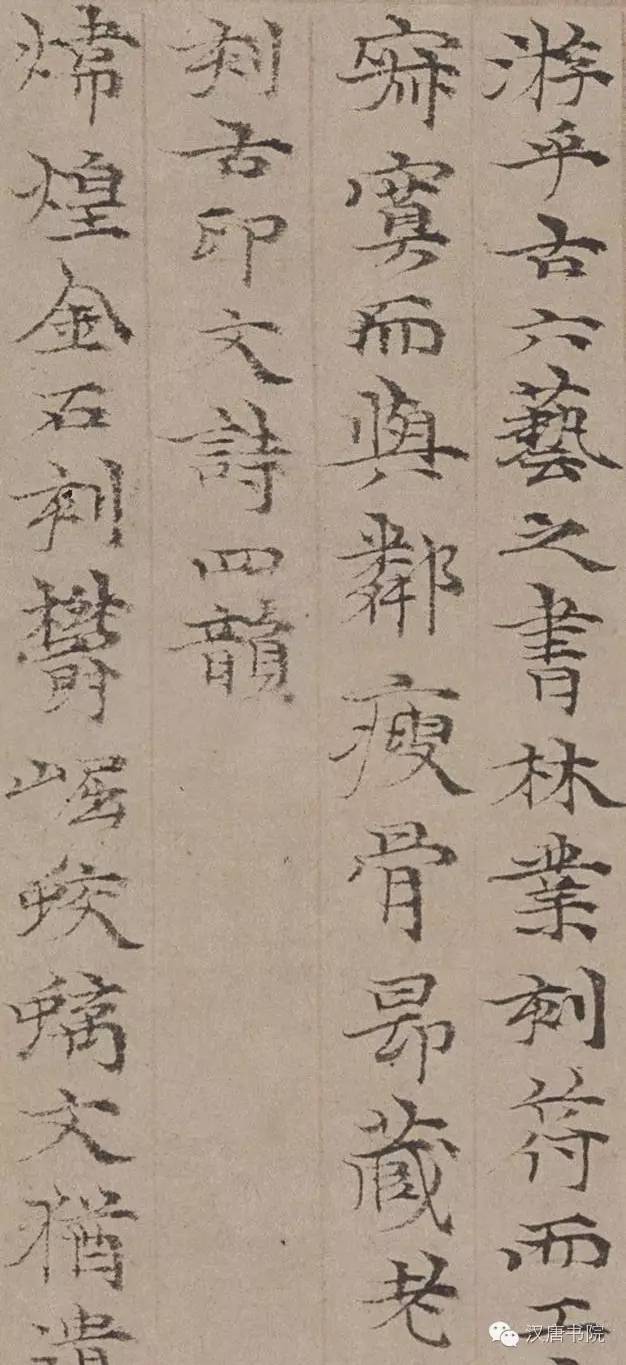 游乎古六藝之書林業刻符而
寂寞而與鄰瘦骨昂藏老
刻古印文詩四韻
煒煌金石刻鬱崛蛟螭文猶遺
汉唐书院